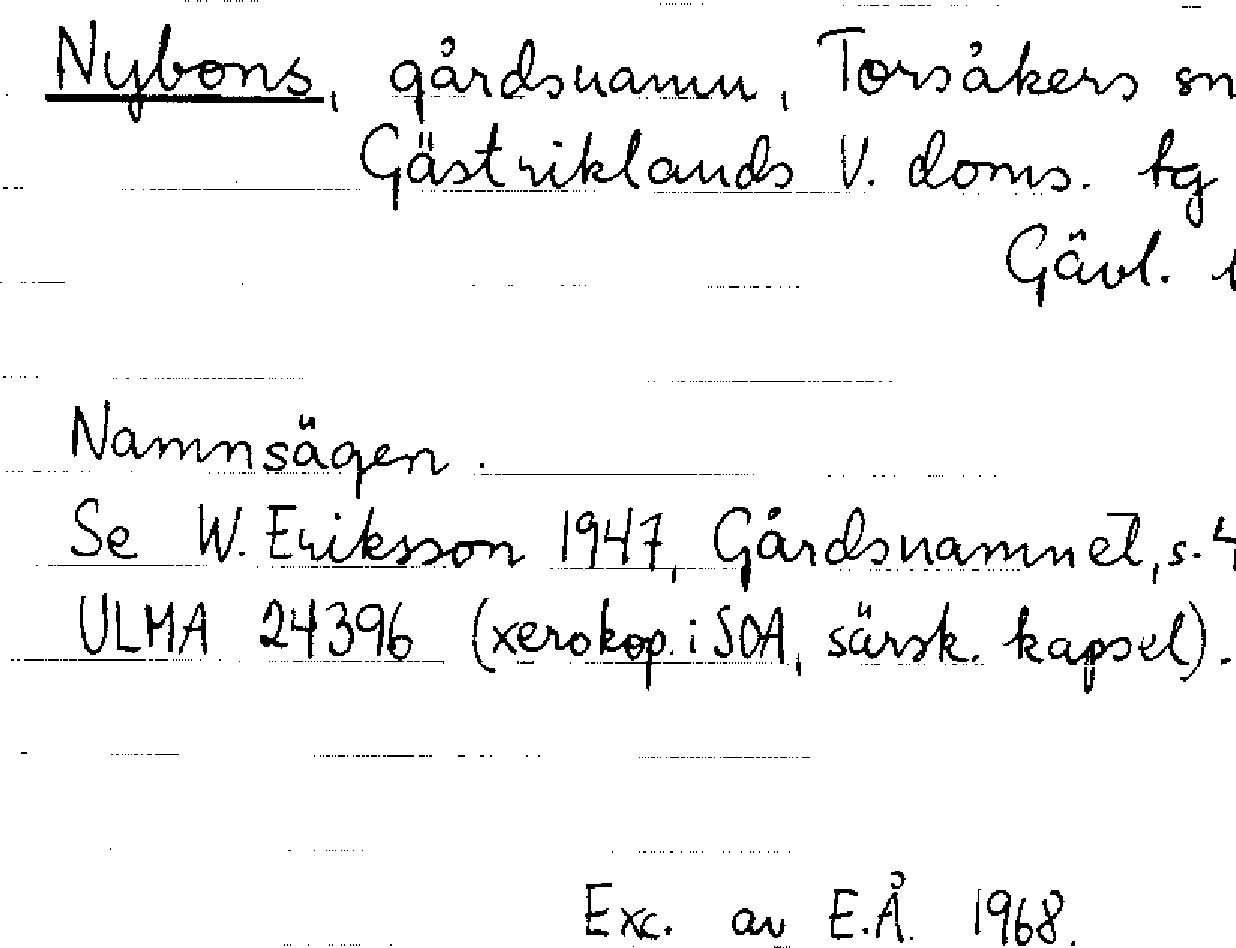 Nybons, gårdsnamn, Torsåkers sn
Gästriklands V. doms. tg
Gävl.
Namnsägen.
Se W. Eriksson 1947, Gårdsnamnet, s. 4
ULMA 24396 (xerokop. i SOA, särsk. kapsel).
Exc. av E.Å. 1968.